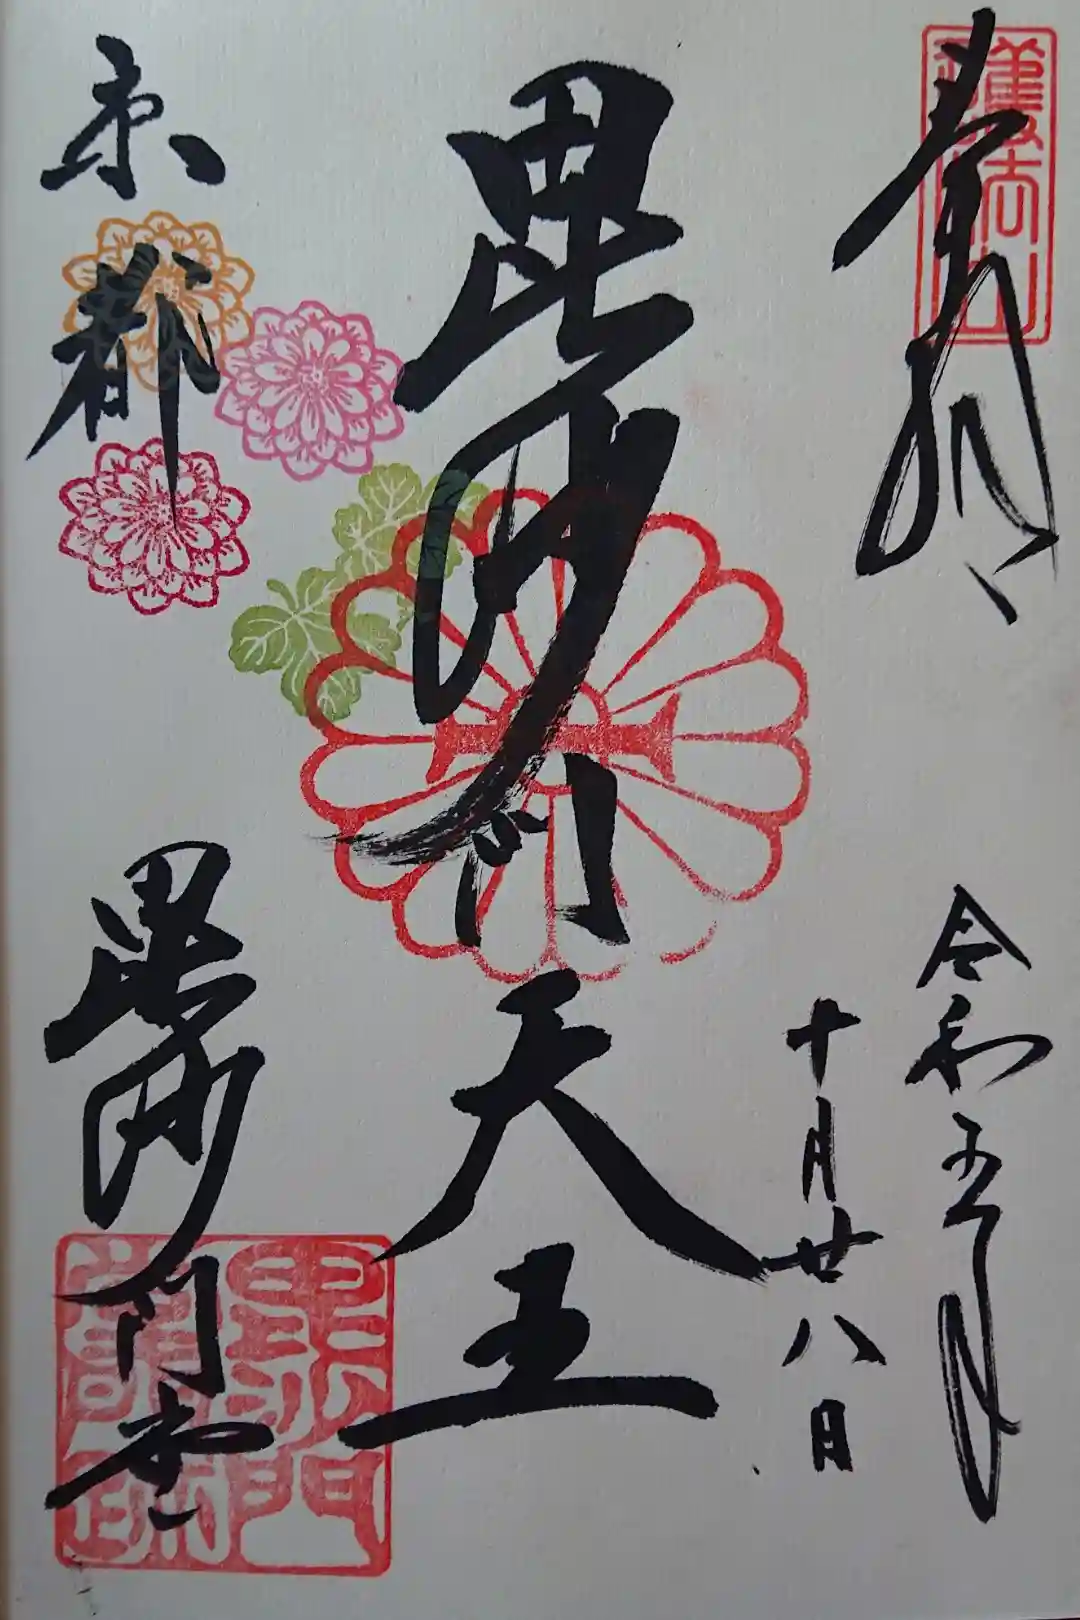 奉拝
護法山
令和五年
十月廿八日
毘沙門天王
京都
毘沙門堂
毘沙門堂門跡